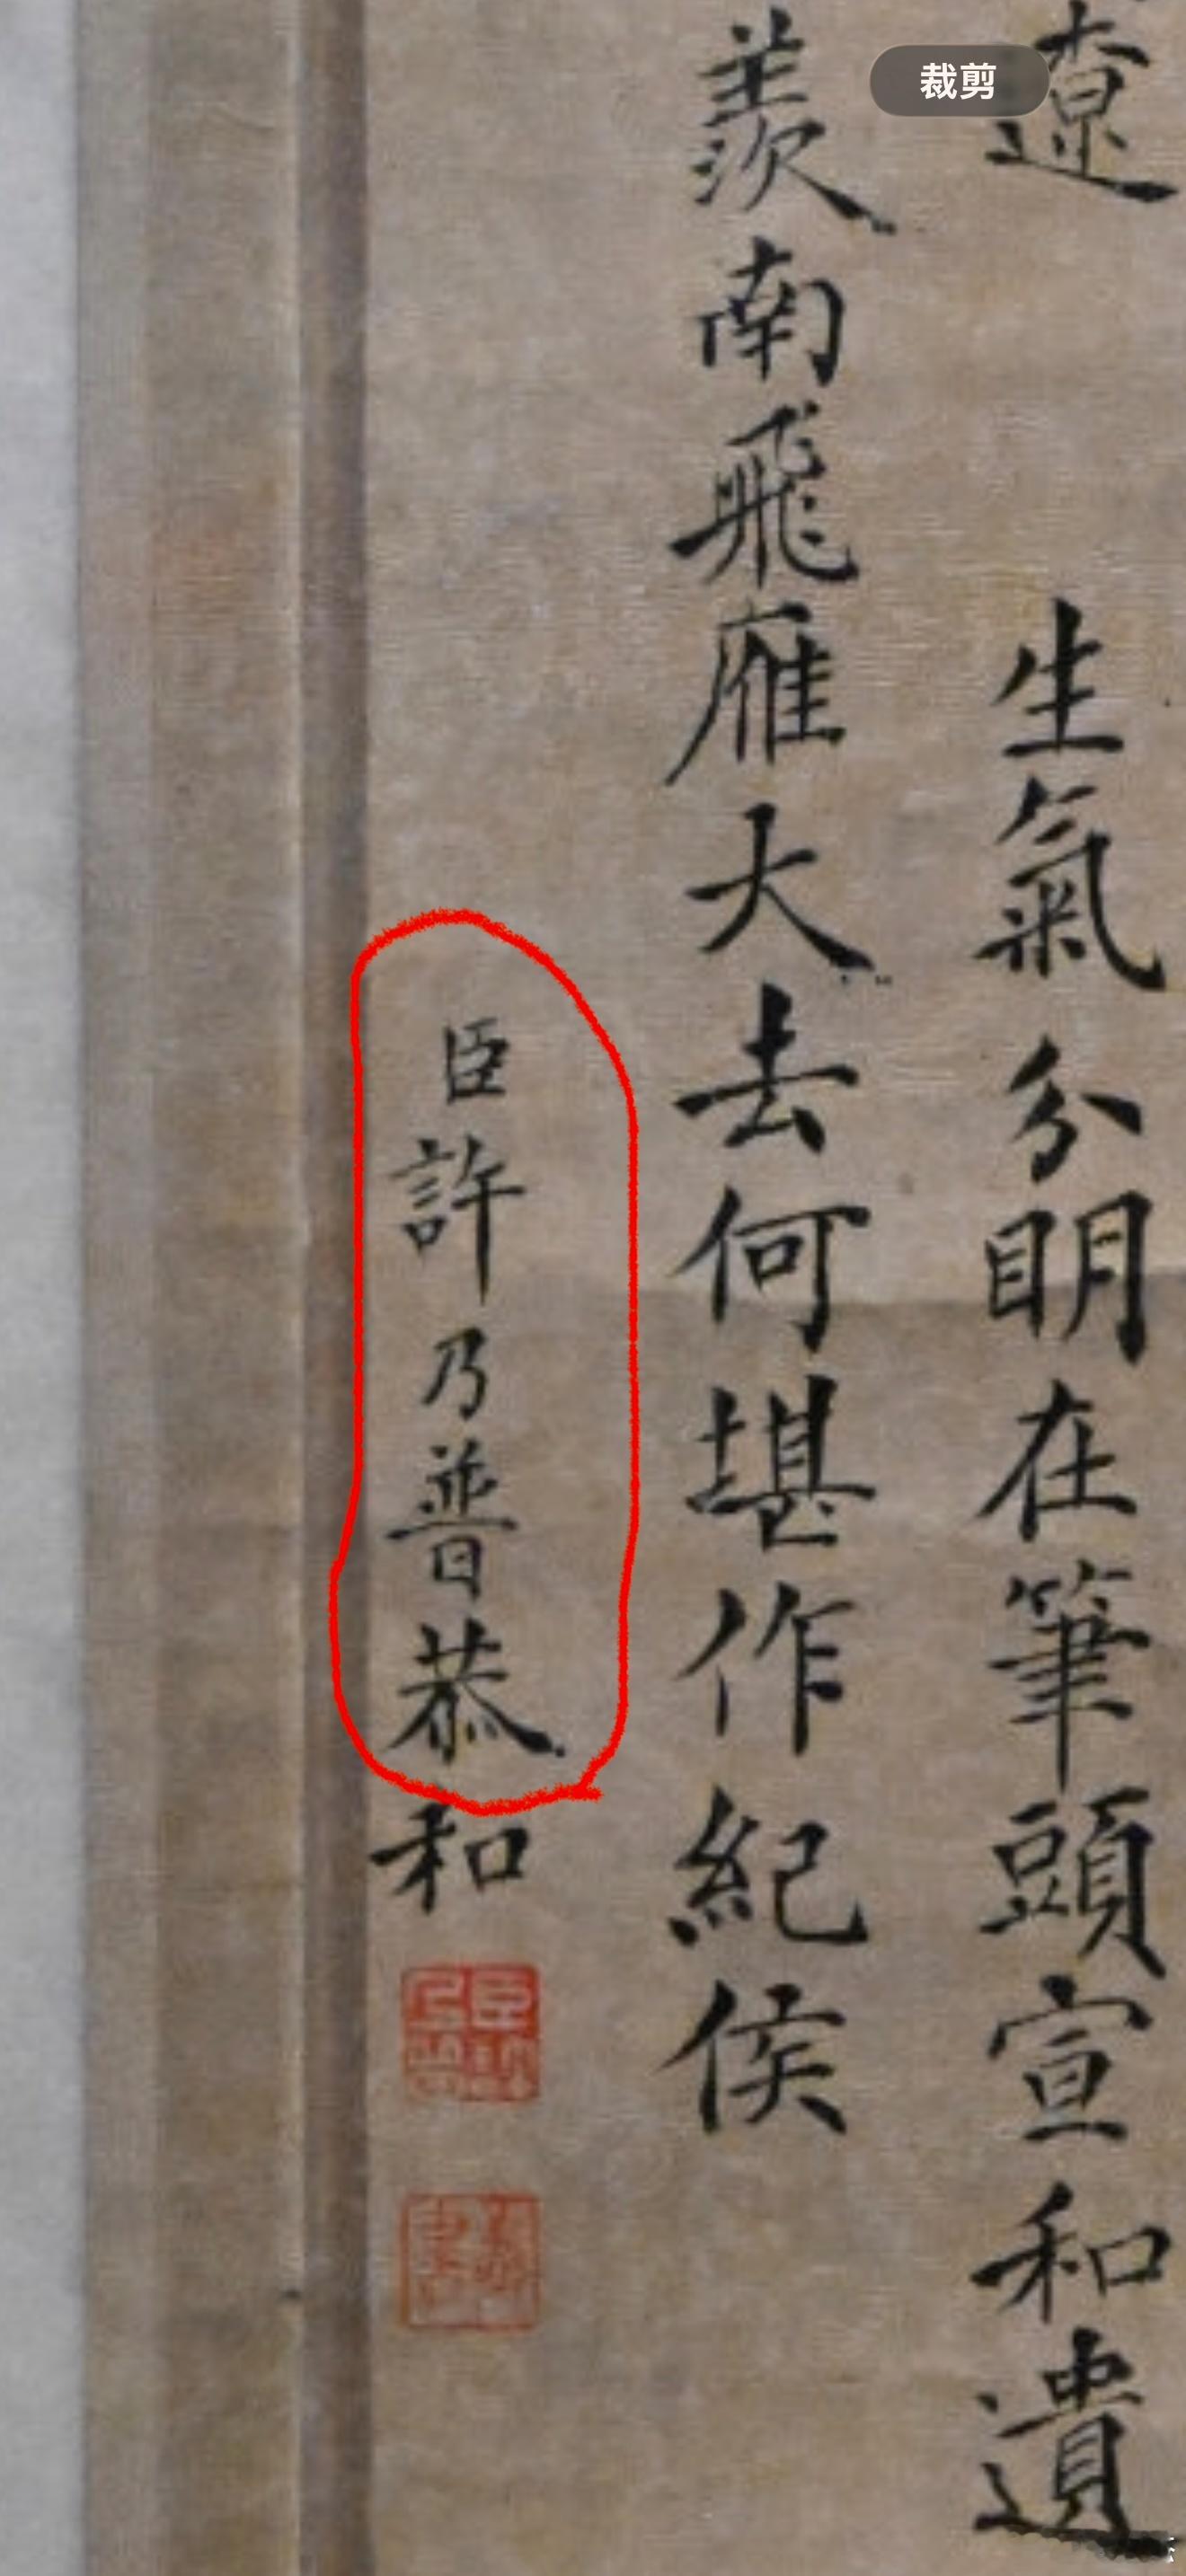 裁剪
遼
生氣分明在筆頭宣和遺
羨南飛雁大去何堪作紀侯
臣許乃普恭和